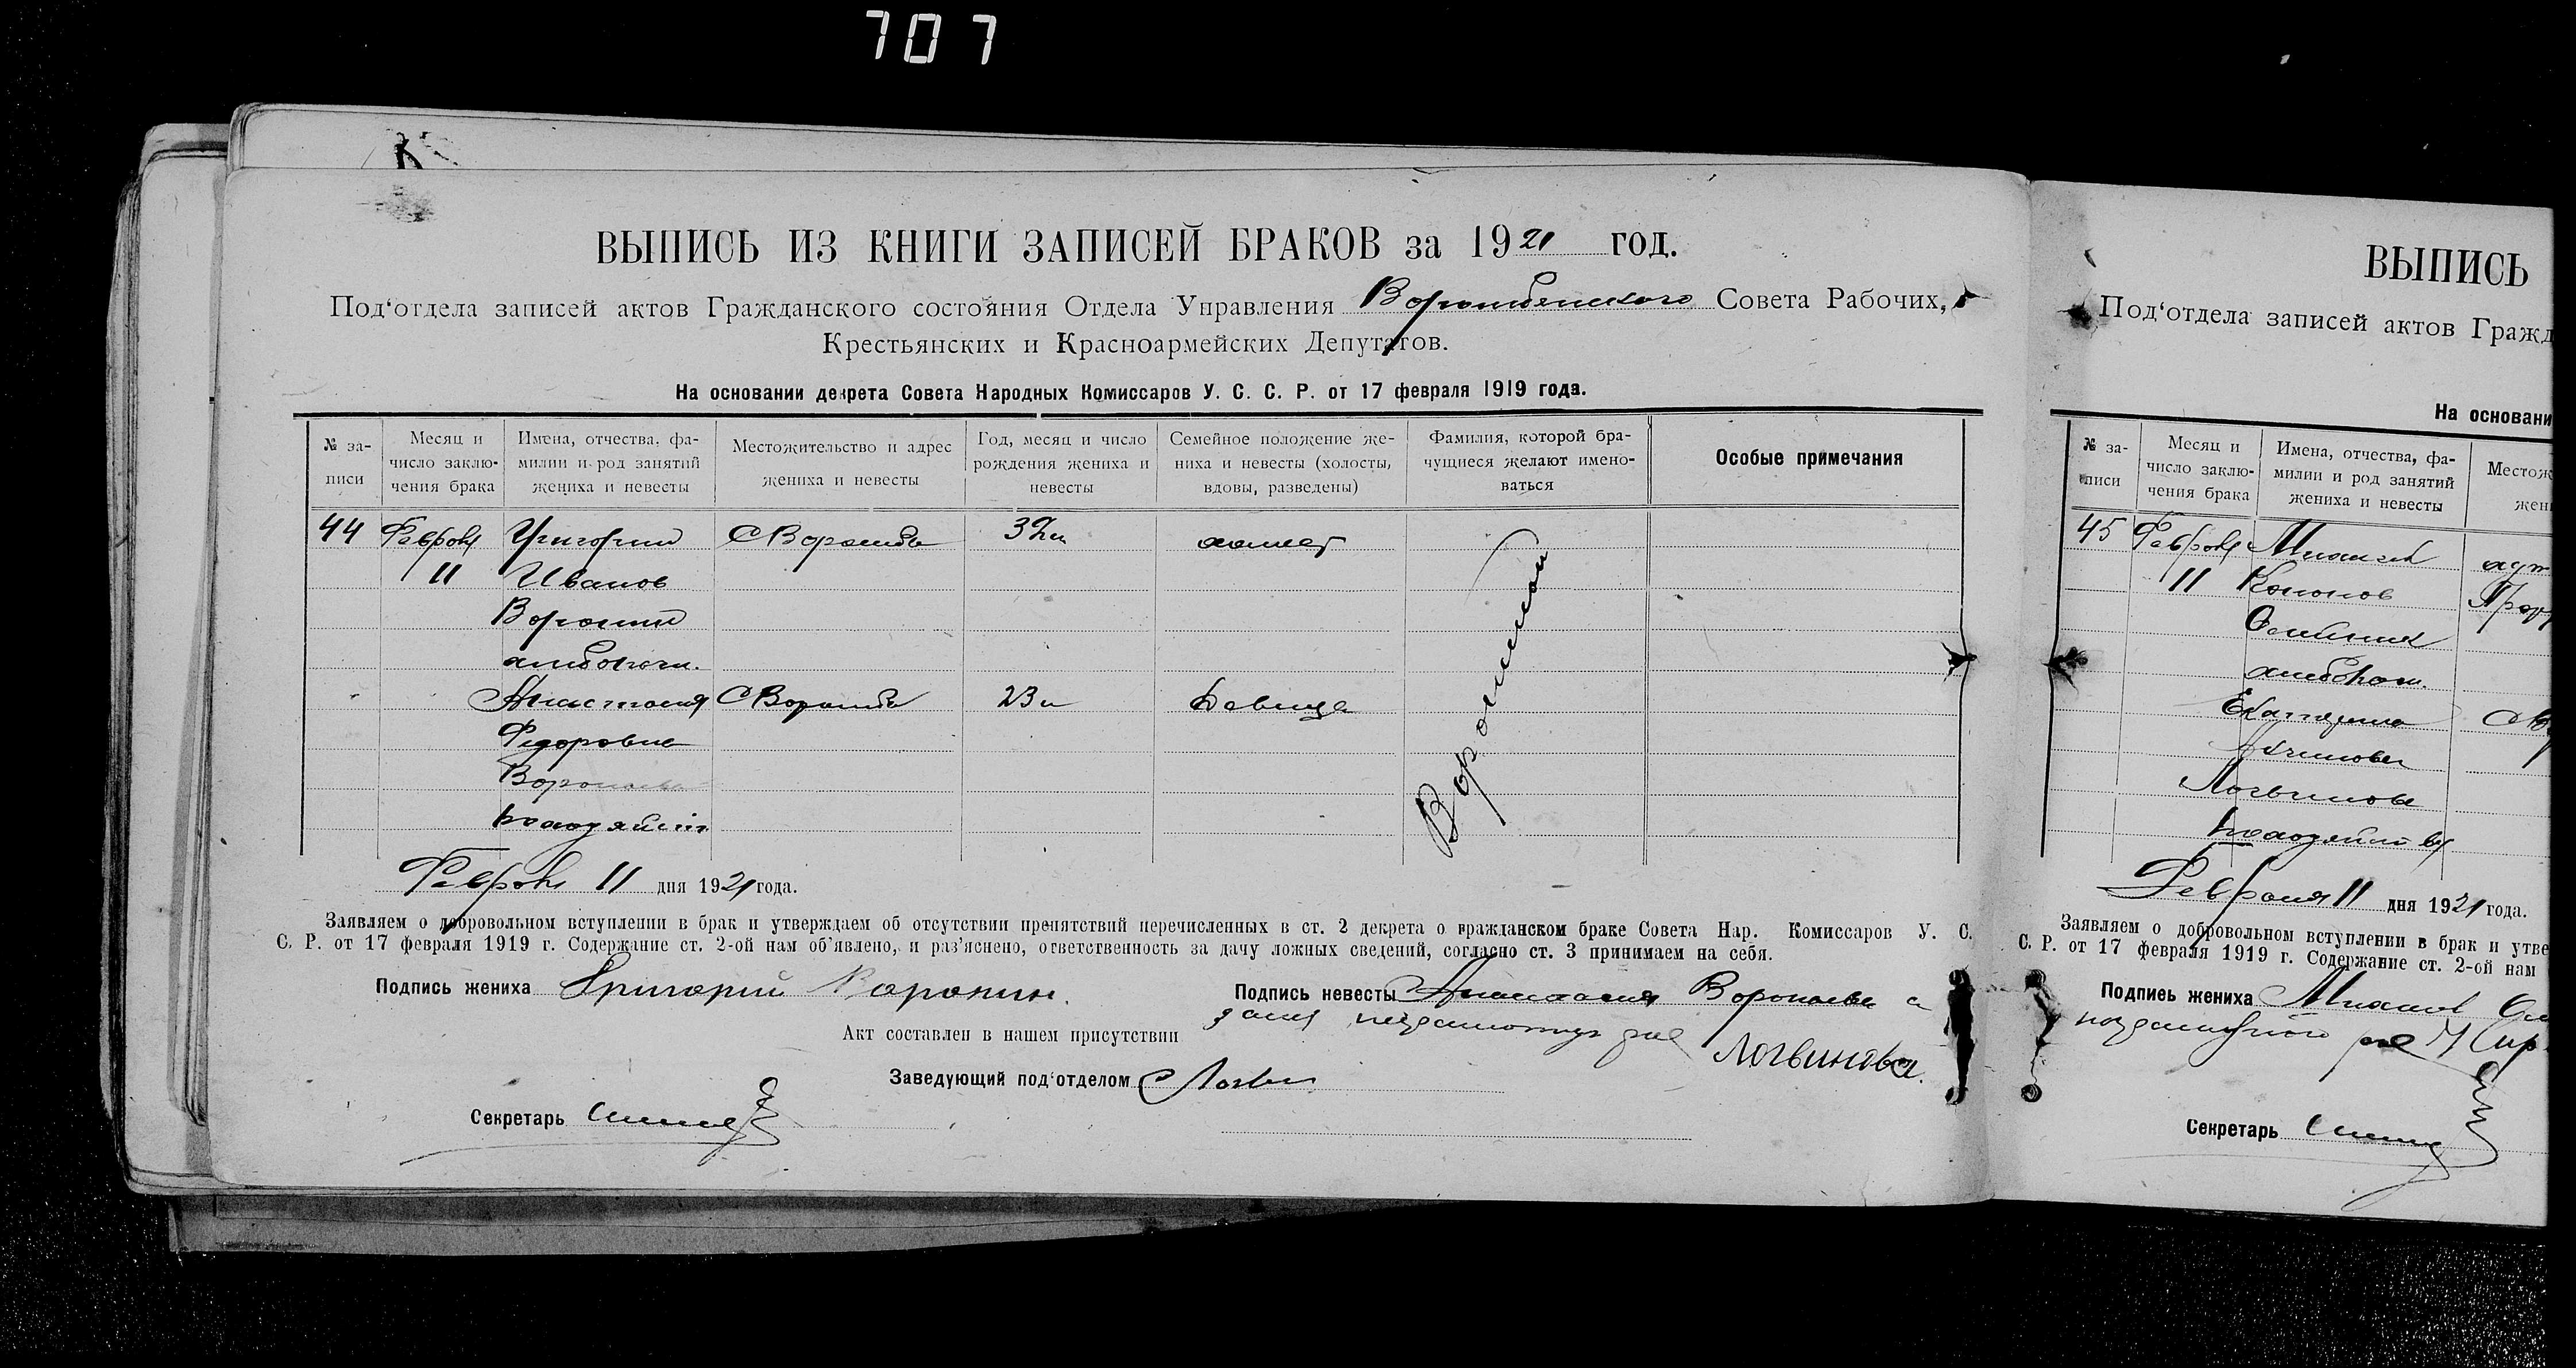 707
ВЫПИСЬ ИЗ КНИГИ ЗАПИСЕЙ БРАКОВ за 1921 год.
Под‘отдела записей актов Гражданского состояния Отдела Управления Совета Рабочих,
Крестьянских и Красноармейских Депутатов.
На основании декрета Совета Народных Комиссаров У. С. С. Р. от 17 февраля 1919 года.
№ за-
писи
Месяц и
число заклю-
чения брака
Имена, отчества, фа-
милии и род занятий
жениха и невесты
Местожительство и адрес
жениха и невесты
Год, месяц и число
рождения жениха и
невесты
Семейное положение же-
ниха и невесты (холосты,
вдовы, разведены)
Фамилия, которой бра-
чущиеся желают имено-
ваться
Особые примечания
44 Февраля Григорий С Ворожба холост
11 Иванов
Воронин
хлебопаш.
Анастасия С Ворожба 23 Девица
Федоровна
Воропаева
Воронины
Февраля 11 дня 1921 года.
Заявляем о добровольном вступлении в брак и утверждаем об отсутствии препятствий перечисленных в ст. 2 декрета о гражданском браке Совета Нар. Комиссаров У. С.
С. Р. от 17 февраля 1919 г. Содержание ст. 2-ой нам об’явлено, и раз’яснено, ответственность за дачу ложных сведений, согласно ст. 3 принимаем на себя.
Подпись жениха Григорий Воронин.
Подпись невесты Анастасия Воропаева а
Логвинова.
Акт составлен в нашем присутствии
Заведующий под‘отделом
Секретарь
ВЫПИСЬ
Под‘отдела записей актов Гражд
На основани
№ за-
писи
Месяц и
число заклю-
чения брака
Имена, отчества, фа-
милии и род занятий
жениха и невесты
Местож
жени
45 Февраля Михаил
11 Кононов
хлебопаш.
Екатерина
Логвинова
Февраля 11 дня 1921 года.
Заявляем о добровольном вступлении в брак и утве
С. Р. от 17 февраля 1919 г. Содержание ст. 2-ой нам
Подпись жениха
Секретарь